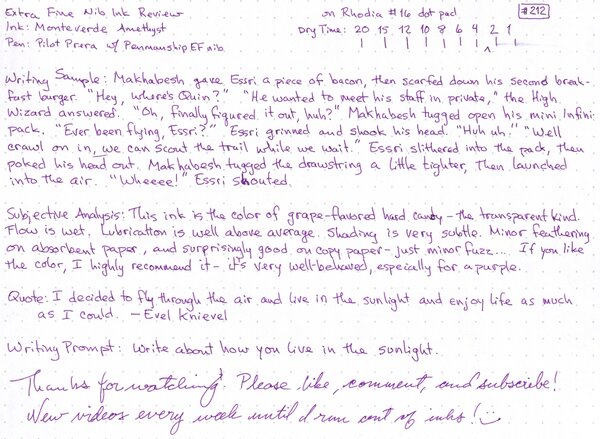 Extra Fine Nib Ink Review on Rhodia #16 dot pad #212
Ink: Monteverde Amethyst Dry Time: 20 15 12 10 8 6 4 2 1
Pen: Pilot Prera w/ Penmanship EF nib
Writing Sample: Makhabesh gave Essri a piece of bacon, then scarfed down his second break-
fast burger. "Hey, where's Quin?" "He wanted to meet his staff in private," the High
Wizard answered. "Oh, finally figured it out, huh?" Makhabesh tugged open his mini Infini
pack. "Ever been flying, Essri?" Essri grinned and shook his head. "Huh uh." "Well
crawl on in, we can scout the trail while we wait." Essri slithered into the pack, then
poked his head out. Makhabesh tugged the drawstring a little tighter, then launched
into the air. "Wheeee!" Essri shouted.
Subjective Analysis: This ink is the color of grape-flavored hard candy - the transparent kind.
Flow is wet. Lubrication is well above average. Shading is very subtle. Minor feathering
on absorbent paper, and surprisingly good on copy paper - just minor fuzz... If you like
the color, I highly recommend it - it's very well-behaved, especially for a purple.
Quote: I decided to fly through the air and live in the sunlight and enjoy life as much
as I could. - Evel Knievel
Writing Prompt: Write about how you live in the sunlight.
Thanks for watching! Please like, comment, and subscribe!
New videos every week until I run out of inks!